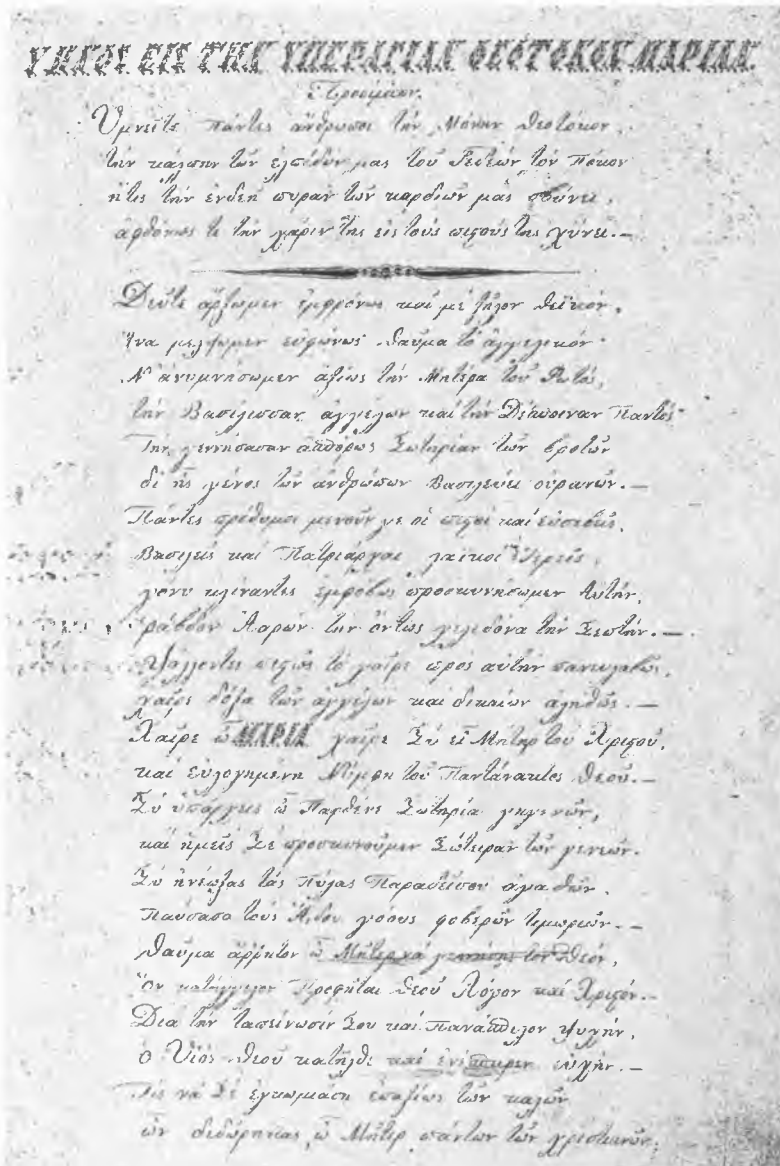 ΥΜΝΟΣ ΕΙΣ ΤΗΝ ΥΠΕΡΑΓΙΑΝ ΘΕΟΤΟΚΟΝ ΜΑΡΙΑΝ
Προοιμιον.
Ὑμνεῖτε πάντες ἄνθρωποι τὴν Μόνην Θεοτόκον,
τὴν τῶν ἐλπίδων μας τοῦ Γεδεὼν τὸν Πόκον
ἥτις τὴν πυρὰν τῶν καρδιῶν μας σβύνει,
ἀφθόνως τε τὴν χάριν της εἰς τοὺς πιστούς της χύνει.—
Δεῦτε ἄρξωμεν ἐμφρόνως καὶ μὲ ζῆλον θεϊκόν,
Ἵνα μέλψωμεν εὐφώνως θαῦμα τὸ ἀγγελικόν·
Ν' ἀνυμνήσωμεν ἀξίως τὴν Μητέρα τοῦ Φωτός,
τὴν Βασίλισσαν ἀγγέλων καὶ τὴν Δέσποιναν Παντός·
Τὴν γεννήσασαν ἀφθόρως Σωτηρίαν τῶν βροτῶν
δι' ἧς γένος τῶν ἀνθρώπων Βασιλεύει οὐρανῶν.—
Πάντες πρόθυμοι μενοῦν γε οἱ πιστοὶ καὶ εὐσεβεῖς,
Βασιλεῖς καὶ Πατριάρχαι λαϊκοὶ Ἱερεῖς,
γόνυ κλίναντες ἐμφόβως προσκυνήσωμεν Αὐτήν,
ῥάβδον Ἀαρὼν τὴν ὄντως χελιδόνα τὴν Σεπτήν.—
Ψάλλοντες πιστῶς τὸ χαῖρε πρὸς αὐτὴν πανευλαβῶς,
χαῖρε δόξα τῶν ἀγγέλων καὶ δικαίων ἀληθῶς.—
Χαῖρε ὦ ΜΑΡΙΑ χαῖρε Σὺ εἶ Μήτηρ τοῦ Χριστοῦ,
καὶ εὐλογημένη Νύμφη τοῦ Παντάνακτος Θεοῦ.—
Σὺ ὑπάρχεις ὦ Παρθένε Σωτηρία γηγενῶν,
καὶ ἡμεῖς Σὲ προσκυνοῦμεν Σώτειραν τῶν γενεῶν.
Σὺ ἠνέῳξας τὰς Πύλας Παραδείσου ἀγαθῶν,
Παύσασα τοὺς Ἅδου γόους φοβερῶν τιμωριῶν.—
Θαῦμα ἄρρητον ὦ Μῆτερ νὰ γεννήσῃς τὸν Θεόν,
Ὃν κατήγγελον Προφῆται Θεοῦ Λόγον καὶ Χριστόν.—
Διὰ τὴν ταπείνωσίν Σου καὶ Πανάσπιλον ψυχήν,
ὁ Υἱὸς Θεοῦ κατῆλθε καὶ εὐχήν.—
Τίς νὰ Σὲ ἐγκωμιάσῃ ἐπαξίως τῶν καλῶν
ὧν δεδώρηκας ὦ Μῆτερ πάντων τῶν χριστιανῶν,